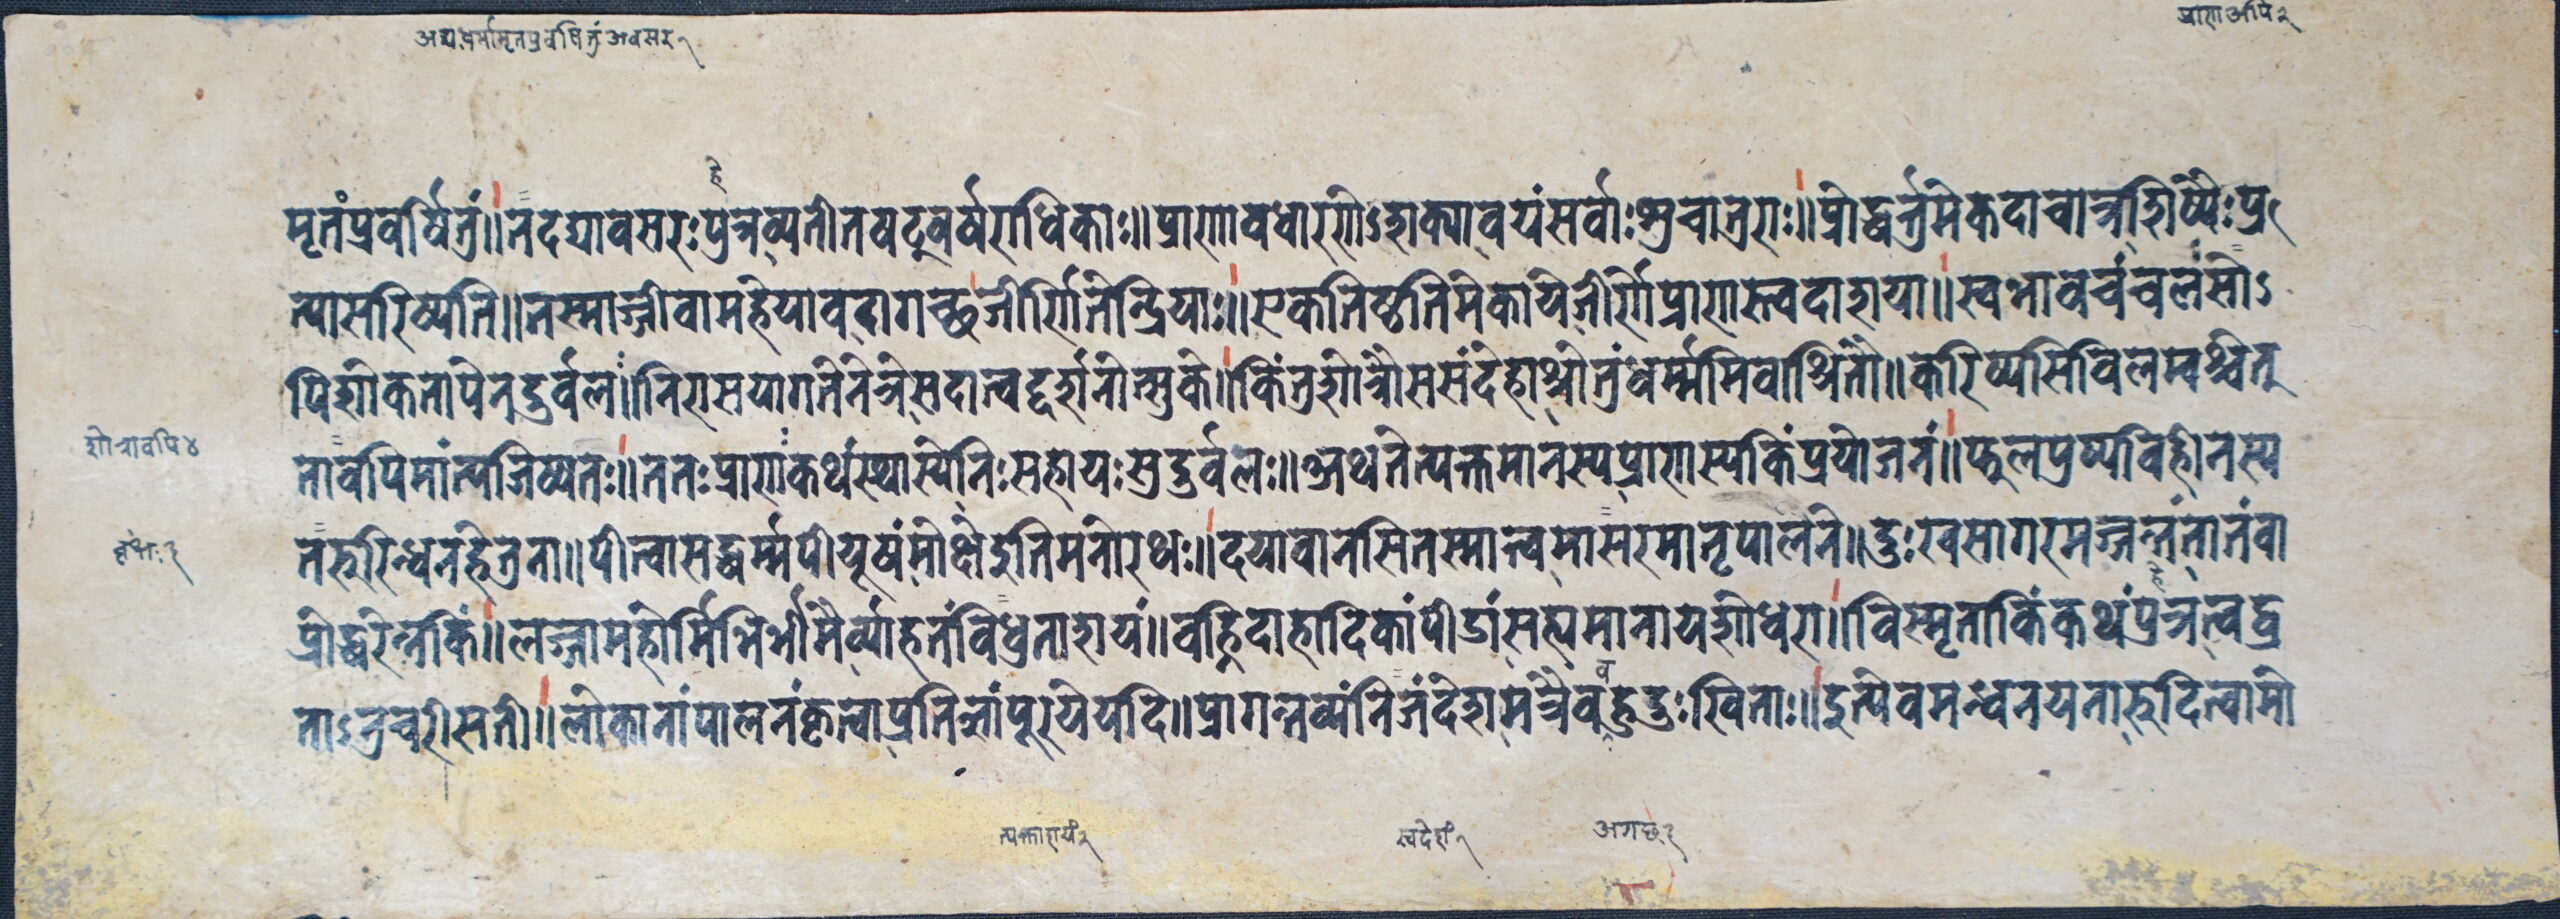 अद्य धर्मामृतप्रवर्षितुं अवसर १
प्राणा अपि २
मृतंप्रवर्षितुं॥तदद्यावसरःपुत्रव्यतीतषट्वर्षराधिकाः॥प्राणावधारणेऽशक्यावयंसर्वाःशुचातुराः॥प्रोद्धर्तुमेकदाचान्नशिष्यैःप्र
हे
त्यासरिष्यति॥तस्माज्जीवामहेयावदागच्छजीर्णितेन्द्रियाः॥एकतिष्ठतिमेकायेजीर्णेप्राणास्त्वदाशया॥स्वभावचंचलंसोऽ
पिशोकतापेनदुर्बलं॥निरासयागतेनेत्रेसदात्वद्दर्शनोत्सुके॥किंतुश्रोत्रौससंदेहाश्रोतुंधर्म्ममिवाश्रितौ॥करिष्यसिविलम्बश्चेत्
श्रोत्रावपि ४
तावपिमांत्यजिष्यतः॥ततःप्राणंकथंस्थास्येनिःसहायःसुदुर्बलः॥अथतेत्यक्तमानस्यप्राणास्यकिंप्रयोजनं॥फुलपुष्पविहीनस्य
तरुरिन्धनहेतुना॥पीत्वासद्धर्म्मपीयूषंमोक्षेइतिमनोरथः॥दयावानसितस्मात्त्वमासरमानृपालने॥दुःखसागरमज्जन्तंतातंवा
प्रोद्धरेन्नकिं॥लज्जामहोर्मिभिर्भीमैर्व्याहतंविधुताशयं॥वह्निदाहादिकांपीडांसह्यमानायशोधरा॥विस्मृताकिंकथंपुत्रत्वद्व्र
हे
ताऽनुचरीसती॥लोकानांपालनंकृत्वाप्रतिज्ञांपूरयेयदि॥प्रागन्तव्यंनिजंदेशमत्रैवबहुदुःखिताः॥इत्येवमन्धनयनारुदित्वामो
स्वदेशं १
अगच्छ २